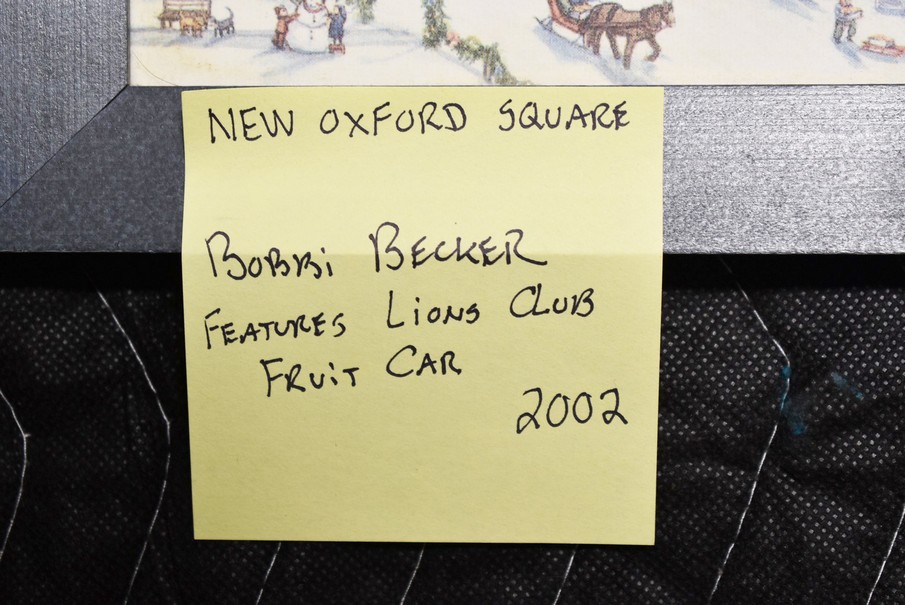 NEW OXFORD SQUARE
BOBBi BECKER
FEATURES LiONS CLUB
FRUiT CAR
2002